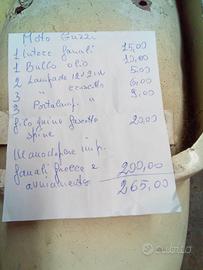 Moto Guzzi
1 Intere fanali 15,00
1 Bullo olio 10,00
2 Lampade 12V 21W 5,00
3 " 6,00
3 Portalamp. " 9,00
filo guaina fascetto 20,00
spine
Manodopera imp.
fanali frecce e 200,00
avviamento 265,00
subito